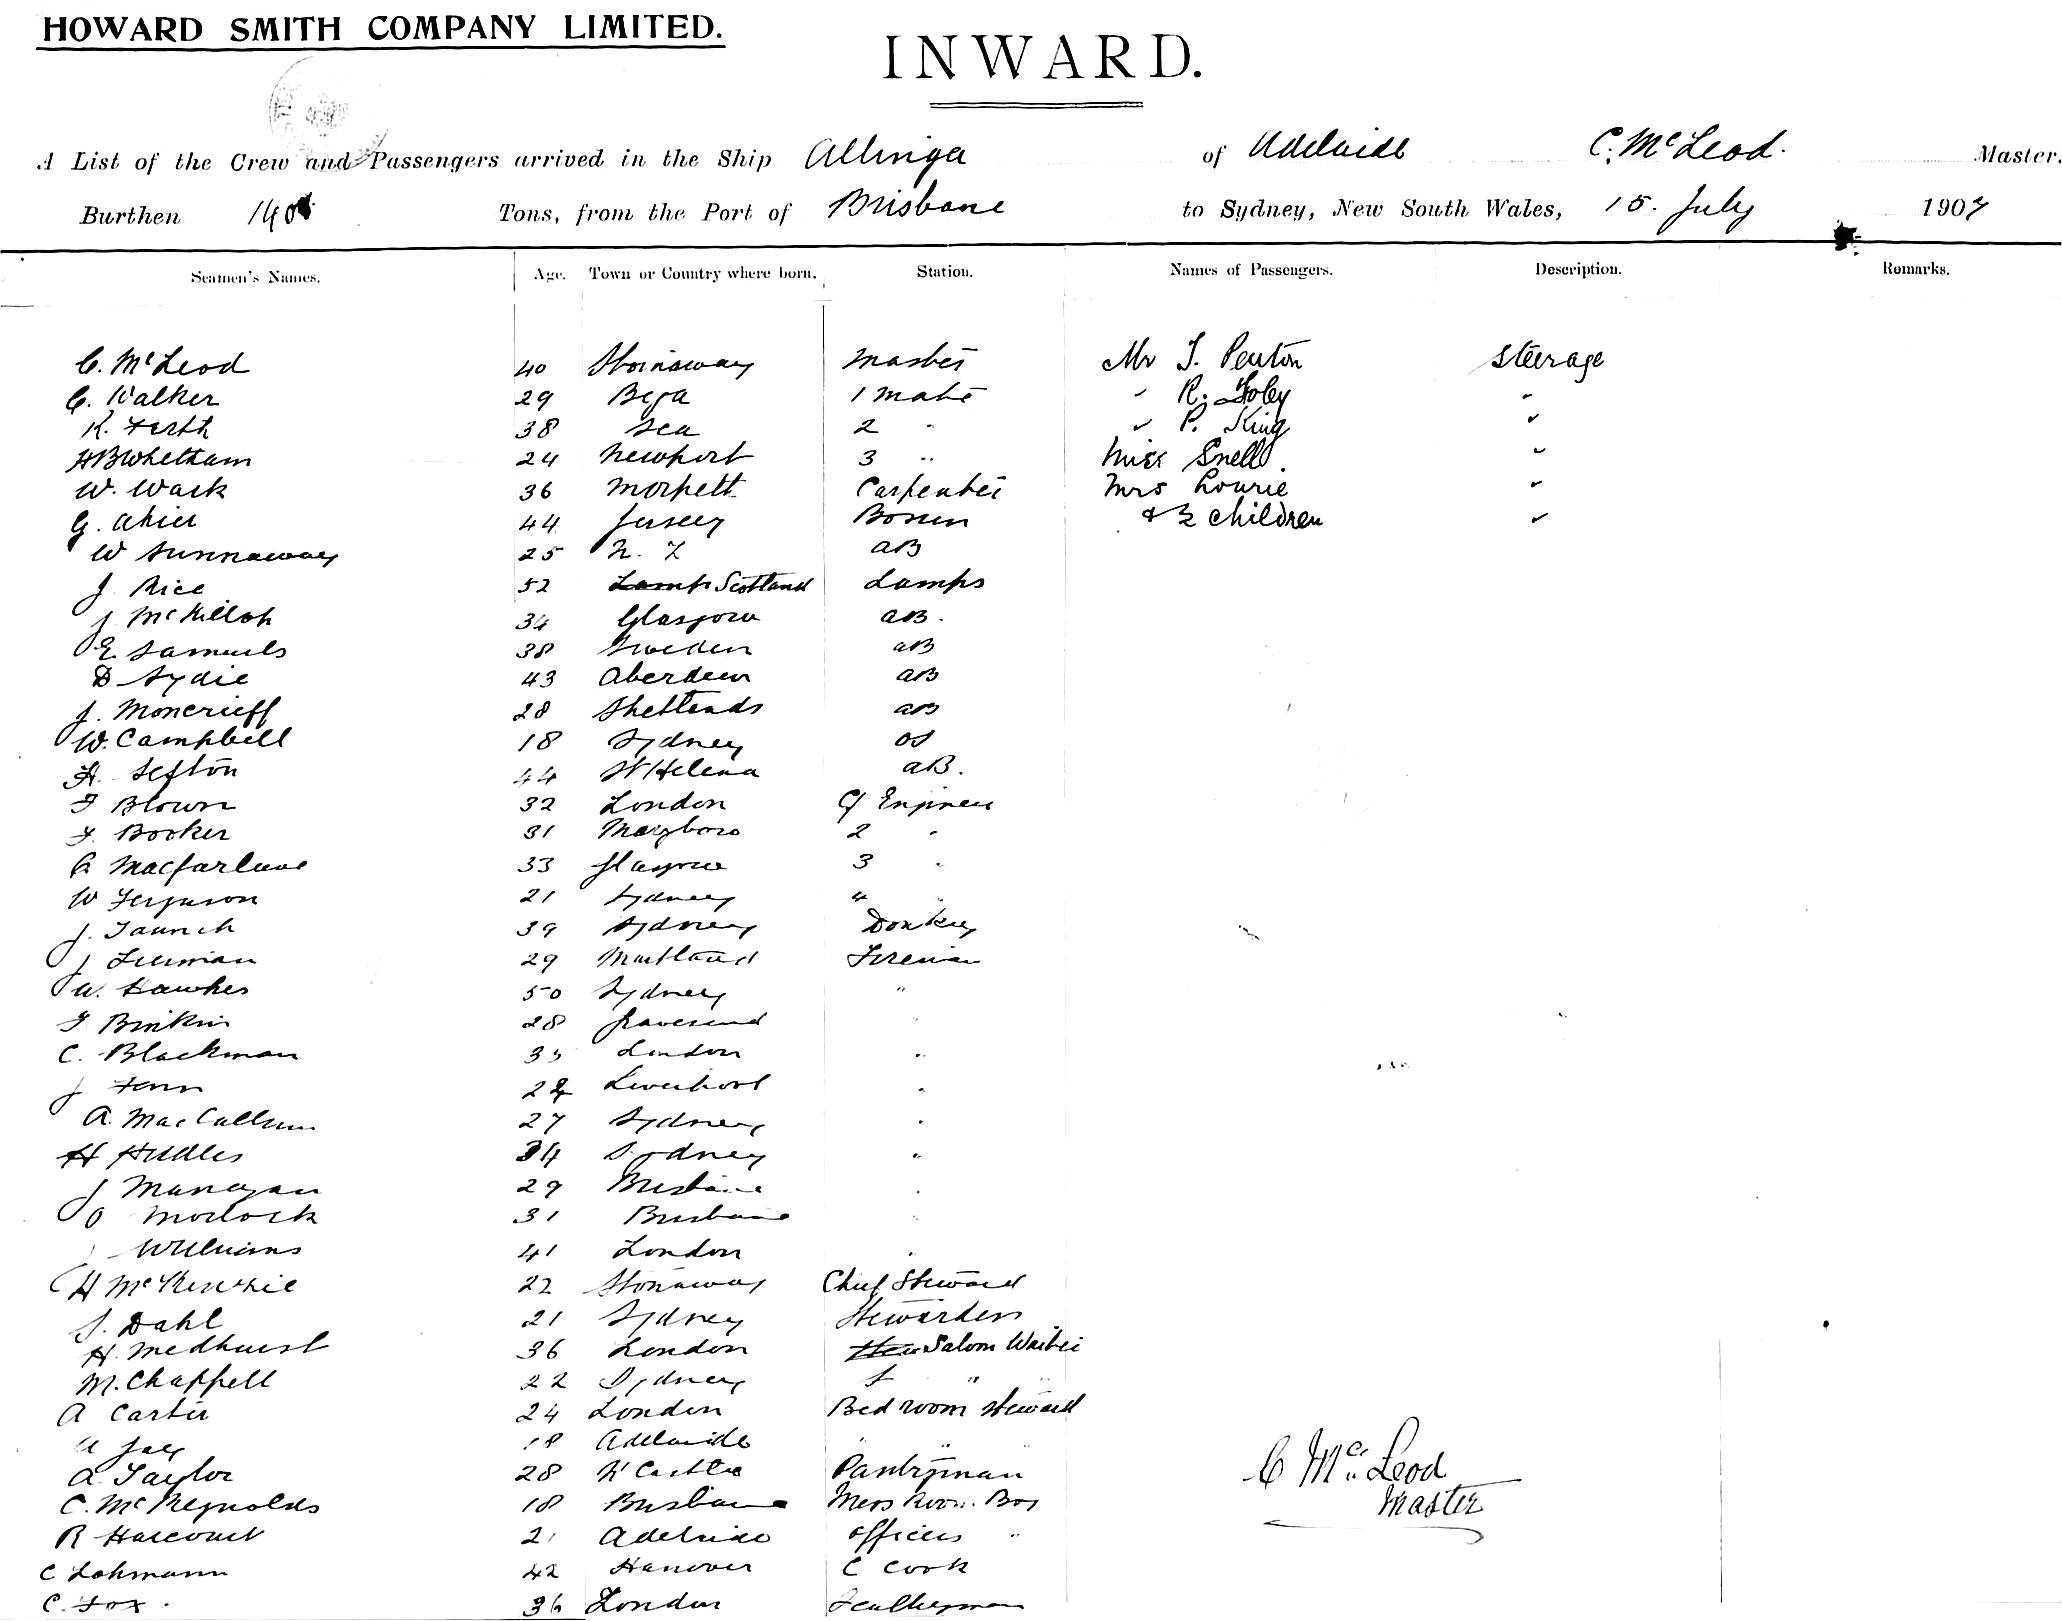 HOWARD SMITH COMPANY LIMITED.
INWARD.
A List of the Crew and Passengers arrived in the Ship Allinga of Adelaide C. McLeod. Master.
Burthen Tons, from the Port of Brisbane to Sydney, New South Wales, 15. July 1907
Seamen's Names. Age. Town or Country where born. Station. Names of Passengers. Description. Remarks.
C. McLeod 40 Stornoway Master Mr J. Penton Steerage
C. Walker 29 Bega 1 Mate " R. Foley "
R. Firth 38 Sea 2 " " P. King "
H B Whelham 24 Newport 3 " Miss Snell. "
W. Wark 36 Morpett Carpenter Mrs Lourie "
G. Ahier 44 Jersey Bosun & 2 children "
W Sunnaway 25 N. Z AB
J Rice 52 Lamp Scotland Lamps
J McKillop 34 Glasgow AB.
E Samuels 38 Sweden AB
D Sydie 43 Aberdeen AB
J. Moncrieff 28 Shetlands AB
W. Campbell 18 Sydney OS
H. Sefton 44 St Helena AB.
F Blown 32 London Cf Engineer
F. Booker 31 Maryboro 2 "
C Macfarlane 33 Glasgow 3 "
W Ferguson 21 Sydney 4 "
J. Taunch 39 Sydney Donkey
J Freeman 29 Maitland Fireman
W. Hawkes 50 Sydney "
F Binkin 28 Gravesend "
C. Blackman 35 London "
J Fenn Liverpool "
A. MacCallum 27 Sydney "
H Hiddles 34 Sydney "
J Manegan 29 Brisbane "
O Morlock 31 Brisbane "
J Williams 41 London "
H McKenzie 22 Stornoway Chief Steward
S. Dahl 21 Sydney Stewardess
H. Medhurst 36 London Stew Saloon Waiter
M. Chappell 22 Sydney " "
A Carter 24 London Bed room Steward
A Jay 18 Adelaide " "
A Taylor 28 N'Castle Pantryman
C. McReynolds 18 Brisbane Mess Room Boy
R Harcourt 21 Adelaide Officers "
C Lohmann 42 Hanover C Cook
C. Fox. 36 London Sculleryman
C McLeod
Master